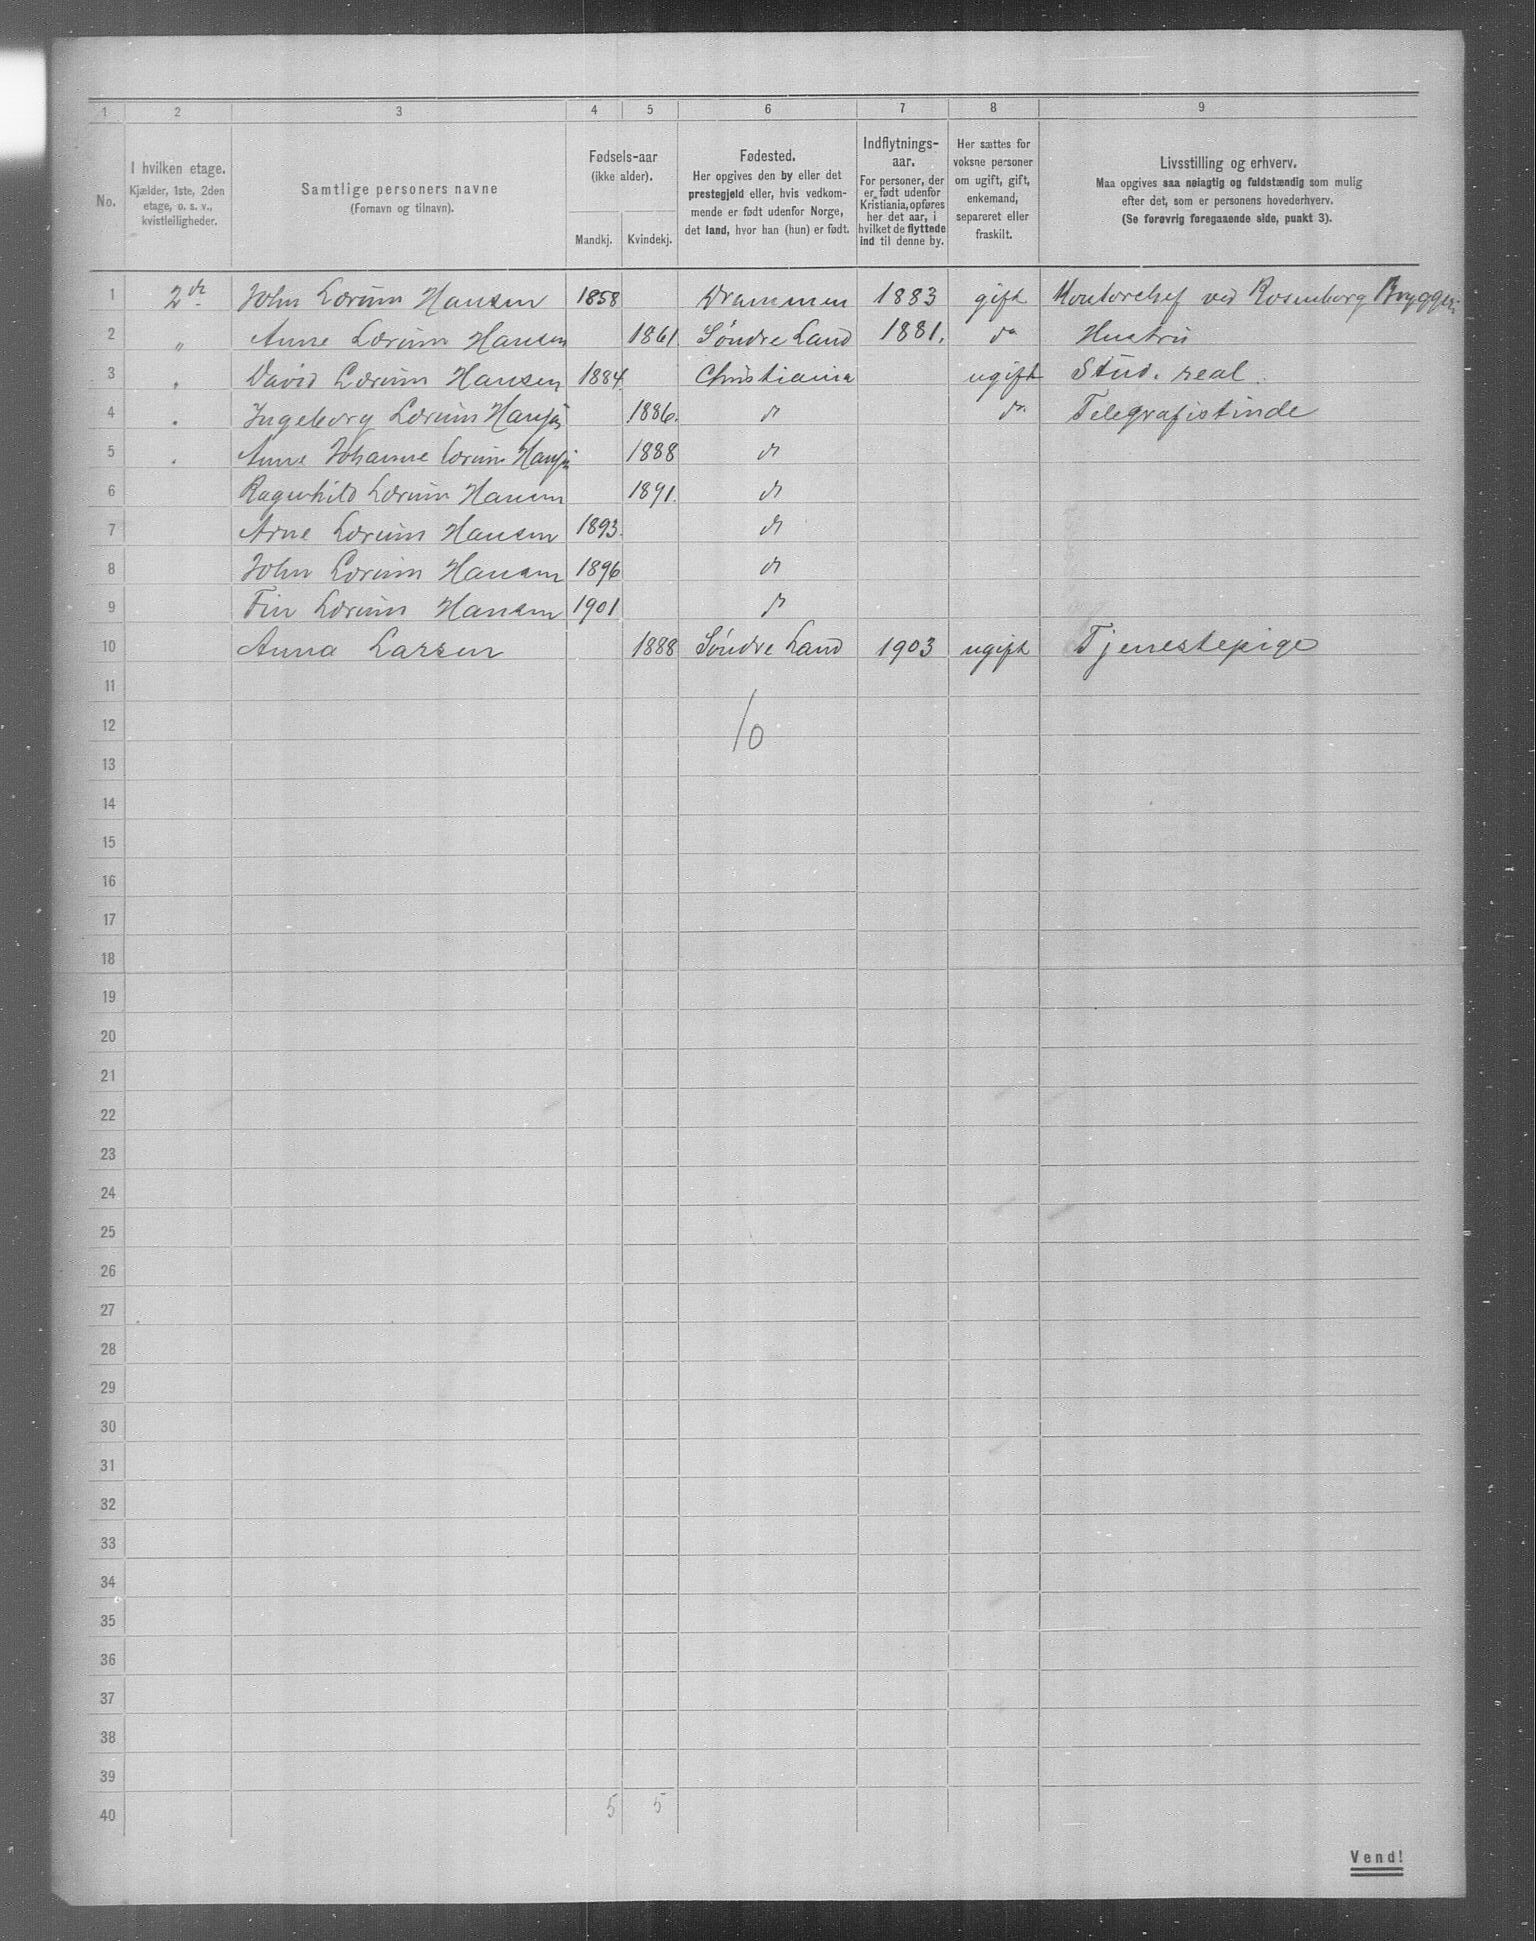 1 2 3 4 5 6 7 8 9
No.
I hvilken etage.
Kjælder, 1ste, 2den
etage, o. s. v.,
kvistleiligheder.
Samtlige personers navne
(Fornavn og tilnavn).
Fødsels-aar
(ikke alder).
Mandkj. Kvindekj.
Fødested.
Her opgives den by eller det
prestegjeld eller, hvis vedkom-
mende er født udenfor Norge,
det land, hvor han (hun) er født.
Indflytnings-
aar.
For personer, der
er født udenfor
Kristiania, opføres
her det aar, i
hvilket de flyttede
ind til denne by.
Her sættes for
voksne personer
om ugift, gift,
enkemand,
separeret eller
fraskilt.
Livsstilling og erhverv.
Maa opgives saa nøiagtig og fuldstændig som mulig
efter det, som er personens hovederhverv.
(Se forøvrig foregaaende side, punkt 3).
1 2den John Lærum Hansen 1858 Drammen 1883 gift Kontorchef ved Rosenborg Bryggeri
2 „ Anne Lærum Hansen 1861 Søndre Land 1881. do Hustru
3 „ David Lærum Hansen 1884. Christiania ugift Stud. real.
4 „ Ingeborg Lærum Hansen 1886. do do Telegrafistinde
5 „ Anne Johanne Lærum Hansen 1888 do
6 Ragnhild Lærum Hansen 1891. do
7 Arne Lærum Hansen 1893. do
8 John Lærum Hansen 1896 do
9 Fin Lærum Hansen 1901 do
10 Anna Larsen 1888 Søndre Land 1903 ugift Tjenestepige
11
12 10
13
14
15
16
17
18
19
20
21
22
23
24
25
26
27
28
29
30
31
32
33
34
35
36
37
38
39
40 5 5
Vend!